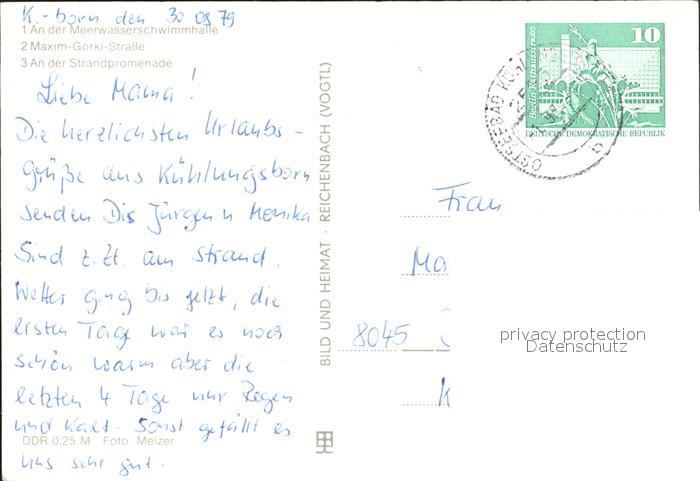 K.-born den 30 08 79
1 An der Meerwasserschwimmhalle
2 Maxim-Gorki-Straße
3 An der Strandpromenade
Liebe Mama!
Die herzlichsten Urlaubs-
grüße aus Kühlungsborn
senden Dir Jürgen u Monika
Sind z. Zt. am Strand.
Wetter ging bis jetzt, die
ersten Tage war es noch
schön warm aber die
letzten 4 Tage nur Regen
und Kalt. Sonst gefällt es
uns sehr gut.
DDR 0,25 M Foto: Melzer
BILD UND HEIMAT · REICHENBACH (VOGTL)
Berlin-Rathausstraße
10
DEUTSCHE DEMOKRATISCHE REPUBLIK
OSTSEEBAD
Frau
Ma
8045
K
privacy protection
Datenschutz